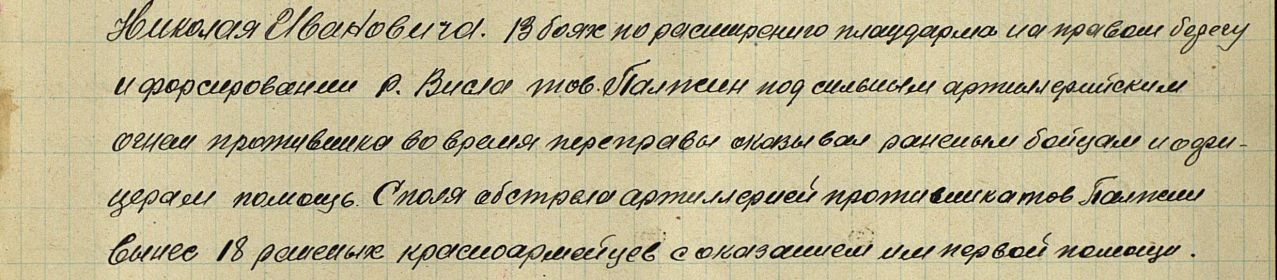 Николая Ивановича. В боях по расширению плацдарма на правом берегу
и форсировании р. Висла тов. Палкин под сильным артиллерийским
огнем противника во время переправы оказывал раненым бойцам и офи-
церам помощь. С поля обстрела артиллерией противника тов. Палкин
вынес 18 раненых красноармейцев с оказанием им первой помощи.